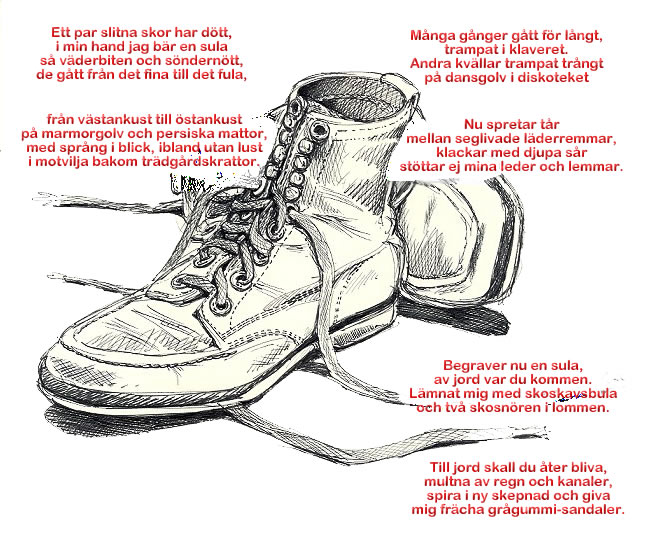 Ett par slitna skor har dött,
i min hand jag bär en sula
så väderbiten och söndernött,
de gått från det fina till det fula,
från västankust till östankust
på marmorgolv och persiska mattor,
med språng i blick, ibland utan lust
i motvilja bakom trädgårdskrattor.
Många gånger gått för långt,
trampat i klaveret.
Andra kvällar trampat trångt
på dansgolv i diskoteket
Nu spretar tår
mellan seglivade läderremmar,
klackar med djupa sår
stöttar ej mina leder och lemmar.
Begraver nu en sula,
av jord var du kommen.
Lämnat mig med skoskavsbula
och två skosnören i lommen.
Till jord skall du åter bliva,
multna av regn och kanaler,
spira i ny skepnad och giva
mig frächa grågummi-sandaler.